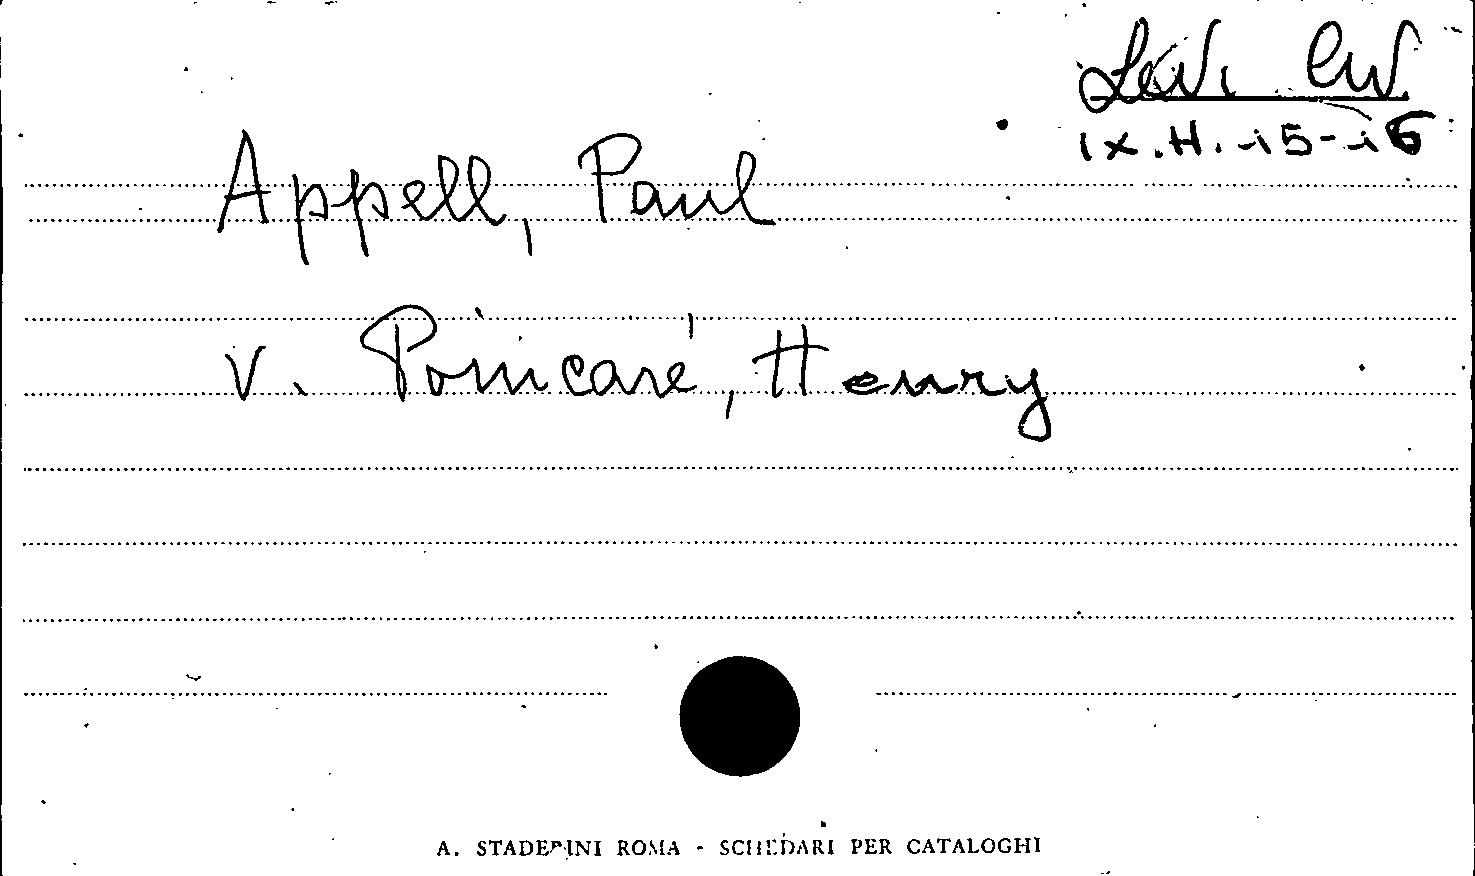 Levi Civ.
IX.H.15-16
Appell, Paul
v. Poincaré, Henry
A. STADERINI ROMA - SCHEDARI PER CATALOGHI